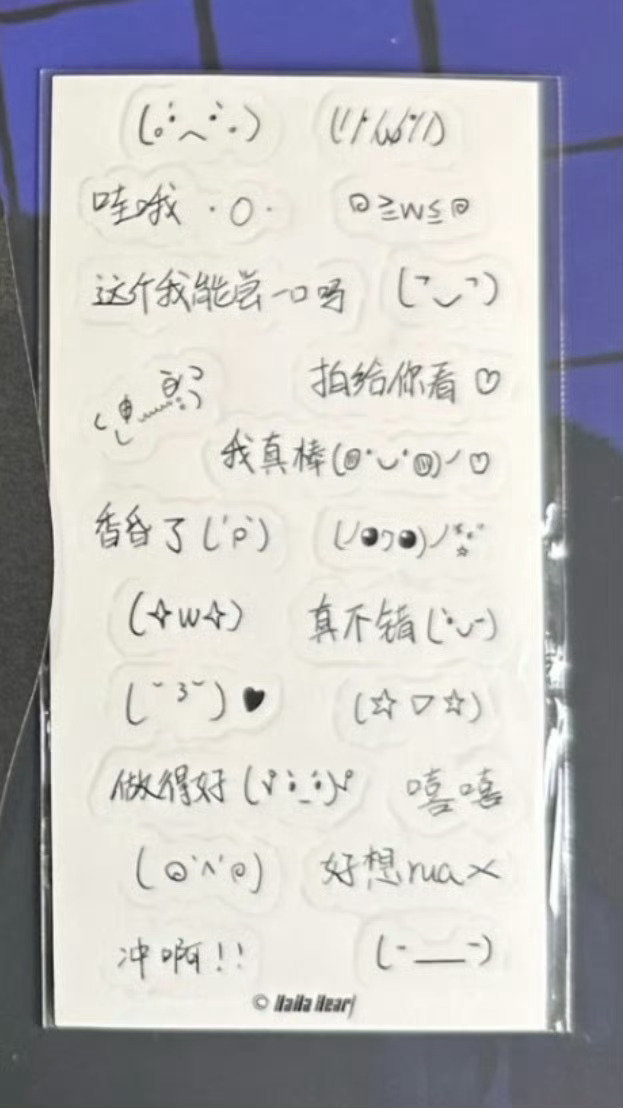 哇哦 ·O·
◎≥w≤◎
这个我能尝一口吗 (˘◡˘)
拍给你看♡
我真棒(◎˙◡˙◎)ノ♡
香昏了('ρ')
(✧w✧) 真不错(˙◡-)
(˘3˘)♥ (☆▽☆)
做得好 嘻嘻
(◎'^'◎) 好想rua×
冲啊!! (-__-)
©